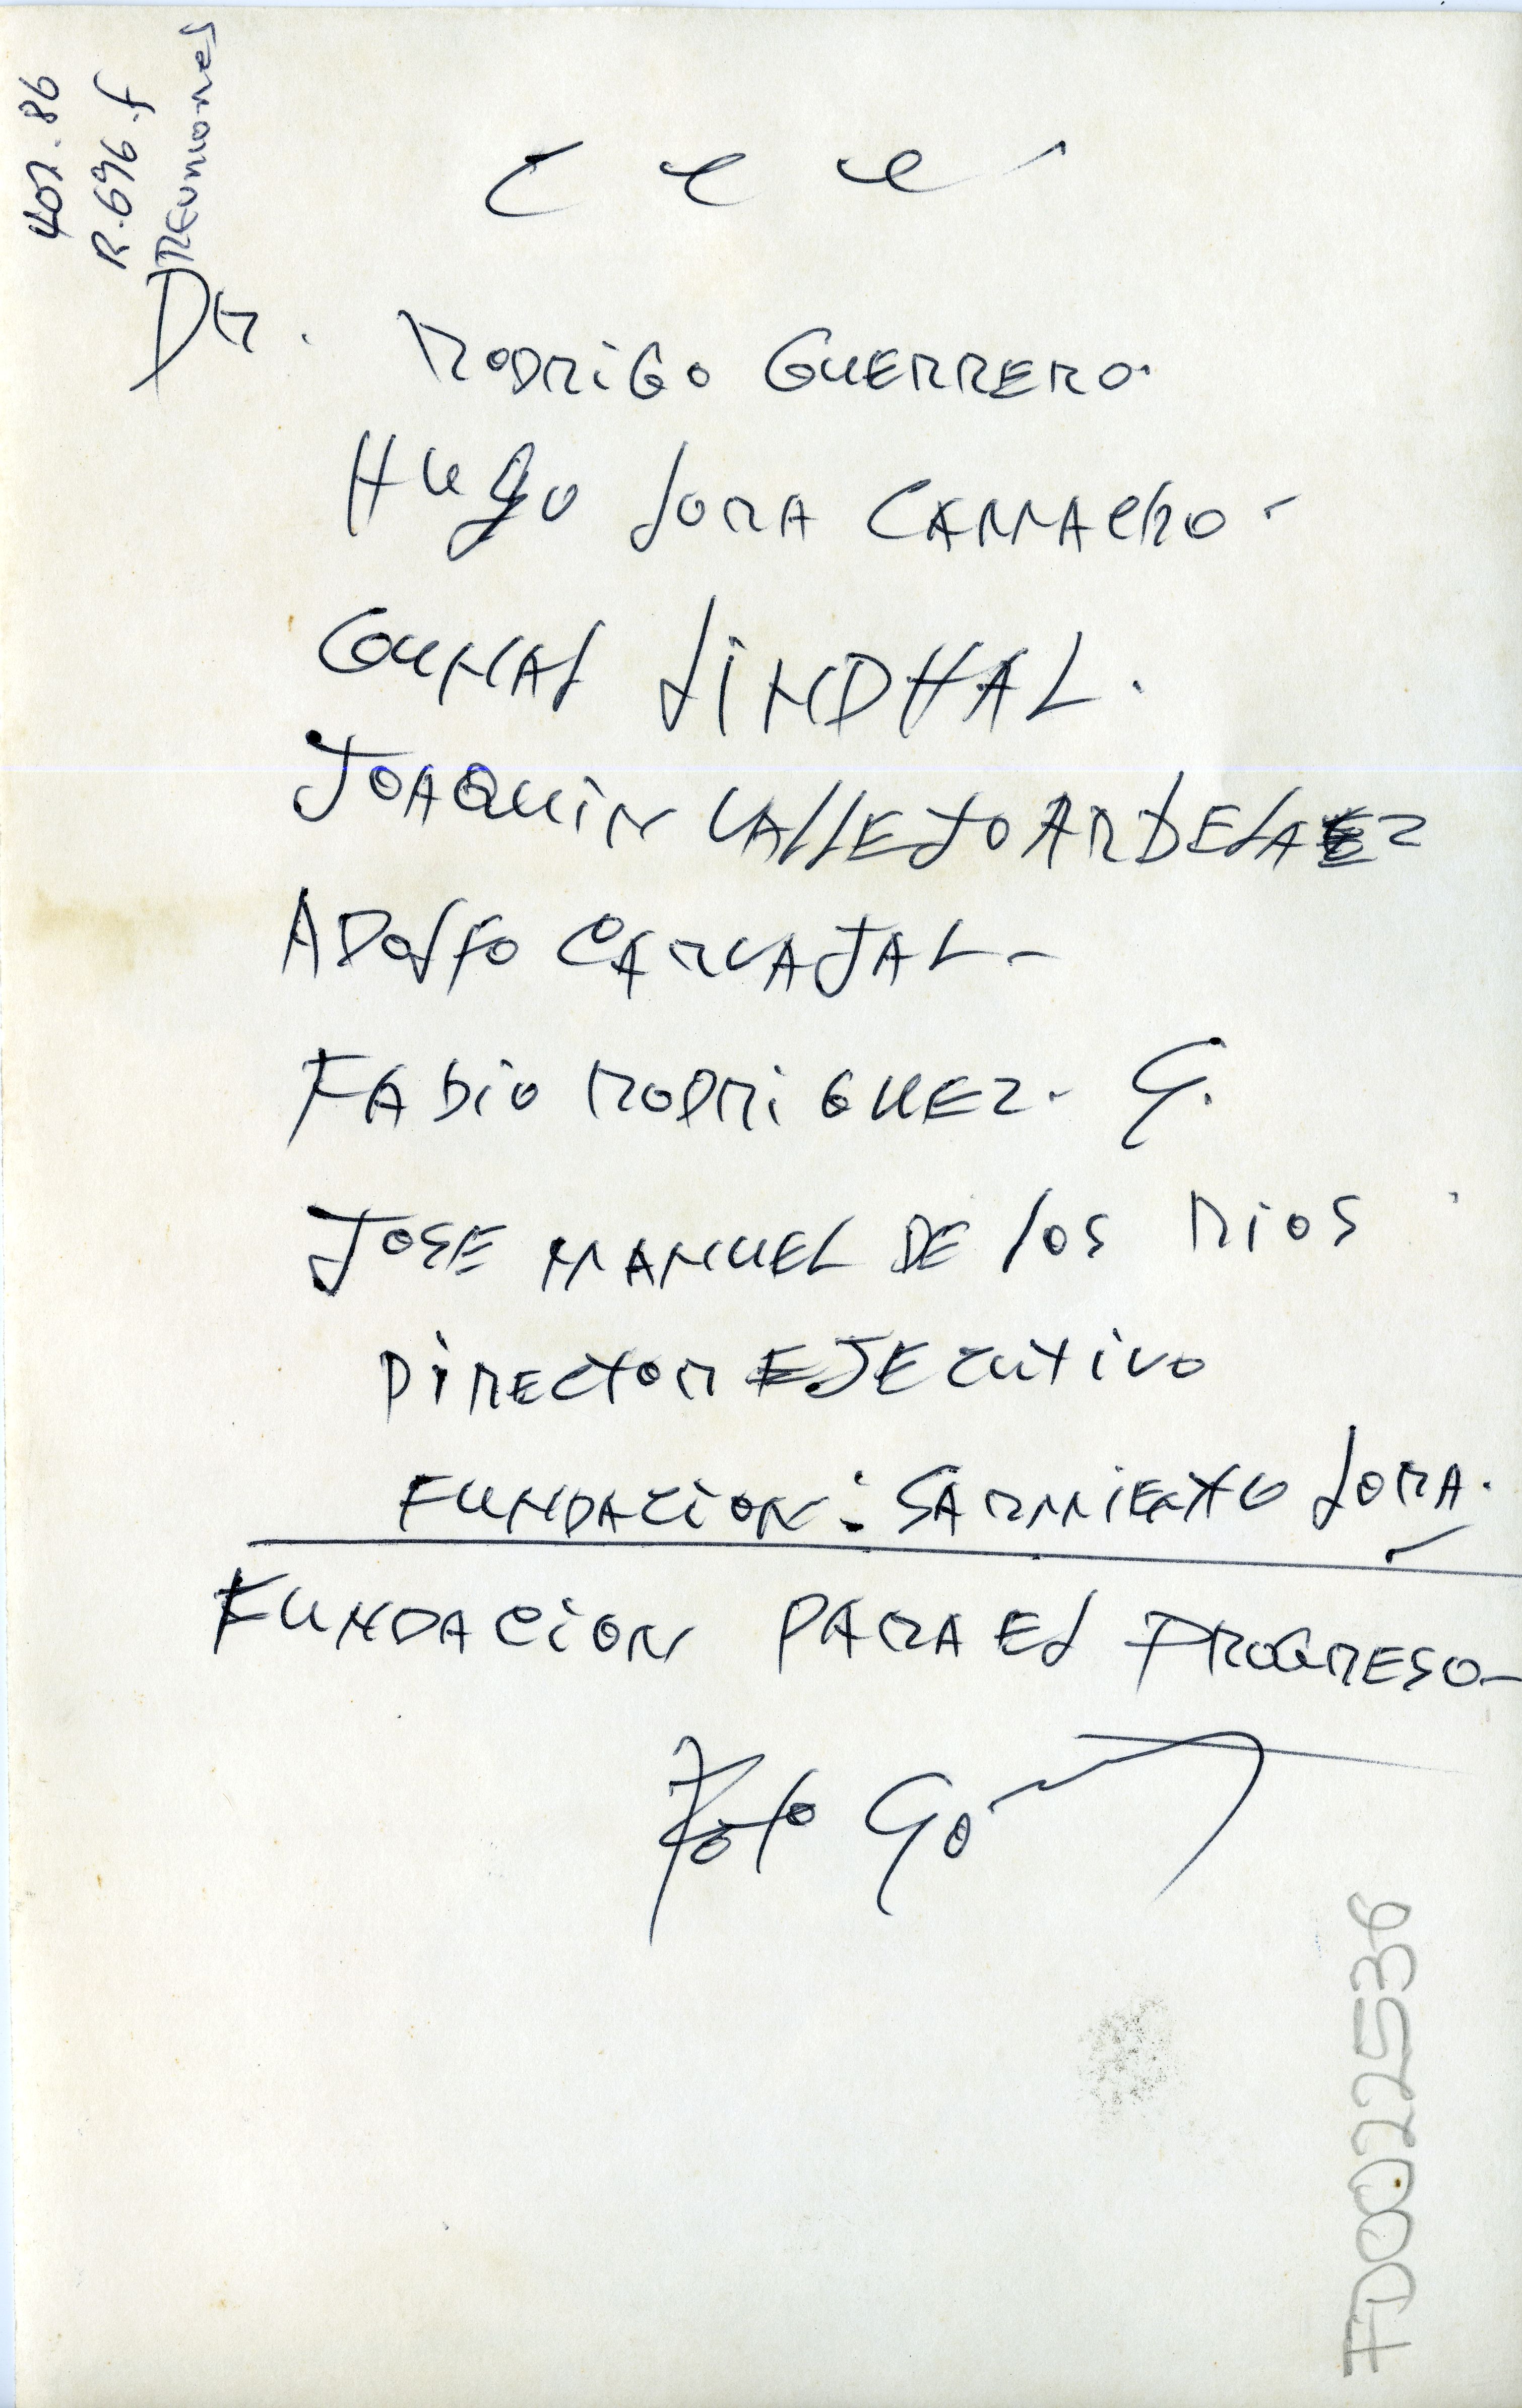 401.86
R.696.f
REUNIONES
DR. RODRIGO GUERRERO.
HUGO LORA CAMACHO -
GUNAL LINDHAL.
JOAQUIN VALLEJO ARBELAEZ
ADOLFO CARVAJAL -
FABIO RODRIGUEZ - G.
JOSE MANUEL DE LOS RIOS
DIRECTOR EJECUTIVO
FUNDACION: SARMIENTO LORA.
FUNDACION PARA EL PROGRESO -
Foto
FD0022536